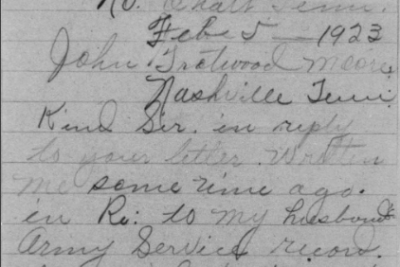 No. Chatt Tenn.
Febr 5 — 1923
John Trotwood Moore
Nashville Tenn.
Kind Sir. in reply
to your letter. Written
me some time ago.
in Re: to my husband
Army Service record.